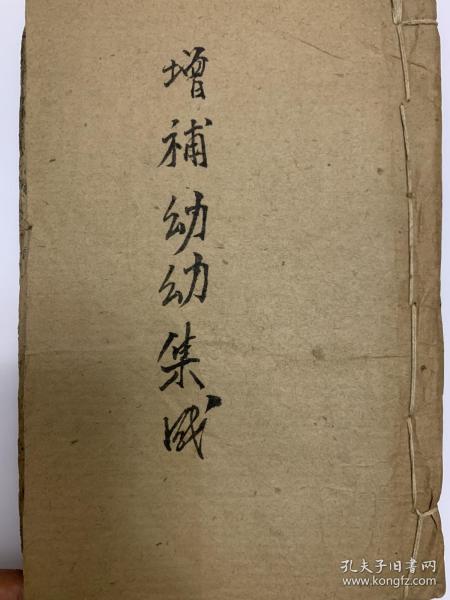 增補幼幼集成
孔夫子旧书网
www.kongfz.com